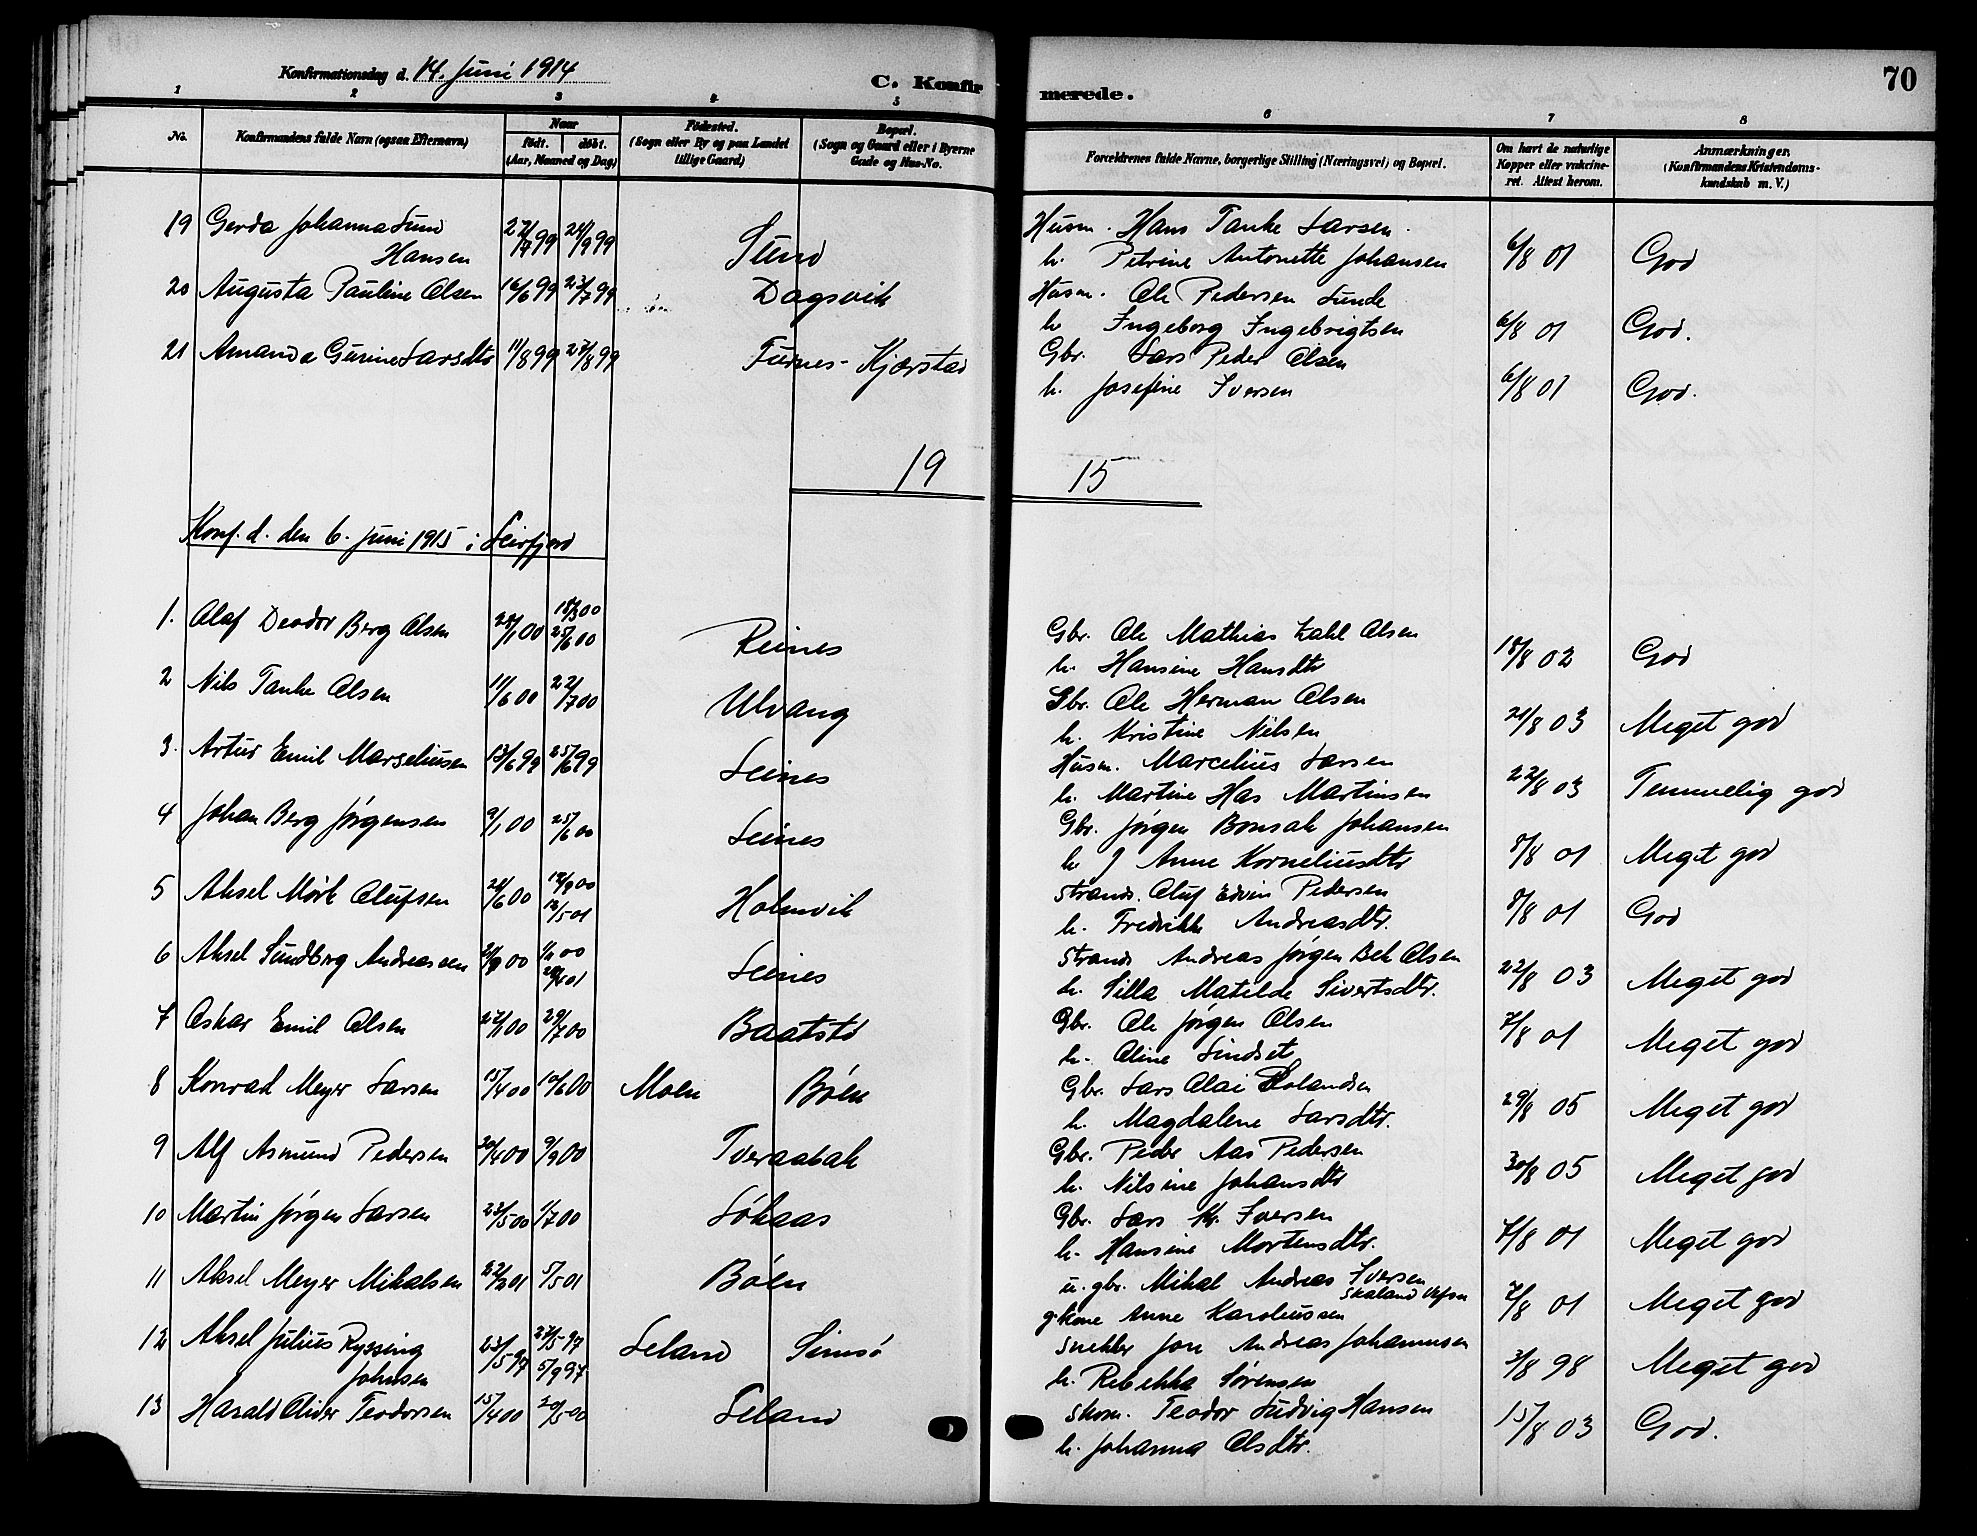 Konfirmationsdag d. 14. Juni 1914
C. Konfirmerede.
70
1 2 3 4 5 6 7 8
No.
Konfirmandens fulde Navn (ogsaa Efternavn)
Naar
født. døbt.
(Aar, Maaned og Dag)
Fødested.
(Sogn eller By og paa Landet
tillige Gaard)
Bopæl.
(Sogn og Gaard eller i Byerne
Gade og Hus-No.
Forældrenes fulde Navne, borgerlige Stilling (Næringsvei) og Bopæl.
Om havt de naturlige
Kopper eller vakcine-
ret. Attest herom.
Anmærkninger.
(Konfirmandens Kristendoms-
kundskab m. V.)
19 Gerda Johanna Lund 27/7 99 24/9 99 Husm. Hans Tanke Larsen.
Hansen h. Petrine Antonette Johansen 6/8 01 God
20 Augusta Pauline Olsen 16/6 99 23/7 99 Dagsvik Husm. Ole Pedersen Lunde
h Ingeborg Ingebrigtsen 6/8 01 God.
21 Amanda Gurine Larsdtr 11/8 99 27/8 99 Furnes- Kjærstad Gbr. Lars Peder Olsen
h. Josefine Iversen 6/8 01 God.
19 15
Konf. d. den 6. Juni 1915 i Leirfjord
1. Olaf Deodor Berg Olsen 25/6 00 Reines Gbr. Ole Mathias Zahl Olsen
h. Hansine Hansdtr 18/8 02 God
2 Nils Tanke Olsen 11/6 00 22/7 00 Ulvang Gbr. Ole Herman Olsen
h. Kristine Nilsen 21/8 03 Meget god
3. Artur Emil Marseliusen 13/6 99 25/6 99 Leines Husm. Marcelius Larsen
h. Martine Has Martinsen 22/8 03 Temmelig god
4 Johan Berg Jørgensen 9/1 00 25/6 00 Leines Gbr. Jørgen Bonsak Johansen
h J Anne Korneliusdtr 8/8 01 Meget god
5 Aksel Mørk Olufsen 12/5 01 Holmvik Strands. Oluf Edvin Pedersen
h. Fredrikke Andreasdtr. 8/8 01 God
6 Aksel Sundberg Andreassen Leines Strands Andreas Jørgen Bek Olsen
h. Silla Matilde Sivertsdtr. 22/8 03 Meget god
7 Oskar Emil Olsen 29/7 00 Baatstø Gbr. Ole Jørgen Olsen
h. Oline Lindset 7/8 01 Meget god
8 Konrad Meyer Larsen 15/4 00 10/6 00 Moen Bøen Gbr. Lars Olai Rolandsen
h. Magdalene Larsdtr. 29/8 05 Meget god
9 Alf Asmund Pedersen 20/4 00 9/9 00 Tveraabak Gbr. Peder Aas Pedersen
h. Nilsine Johansdtr 30/8 05 Meget god
10 Martin Jørgen Larsen 23/5 00 1/7 00 Løkaas Gbr. Lars Kr. Iversen
h. Hansine Mortensdtr. 7/8 01 Meget god
11 Aksel Meyer Mikalsen 22/2 01 5/5 01 Bøen u. gbr. Mikal Andreas Iversen
Skaland Vefsn
g. kone Anne Karoliussen 7/8 01 Meget god
12 Aksel Julius Ryssing 23/5 97 27/5 97 Leland Simsø Snekker Jon Andreas Johannesen
Johnsen 5/9 97 h. Rebekka Sørensen 3/8 98 Meget god
13 Harald Oliver Teodorsen 15/4 00 20/5 00 Leland Skom. Teodor Ludvig Hansen
h. Johanna Olsdtr. 15/8 03 God.